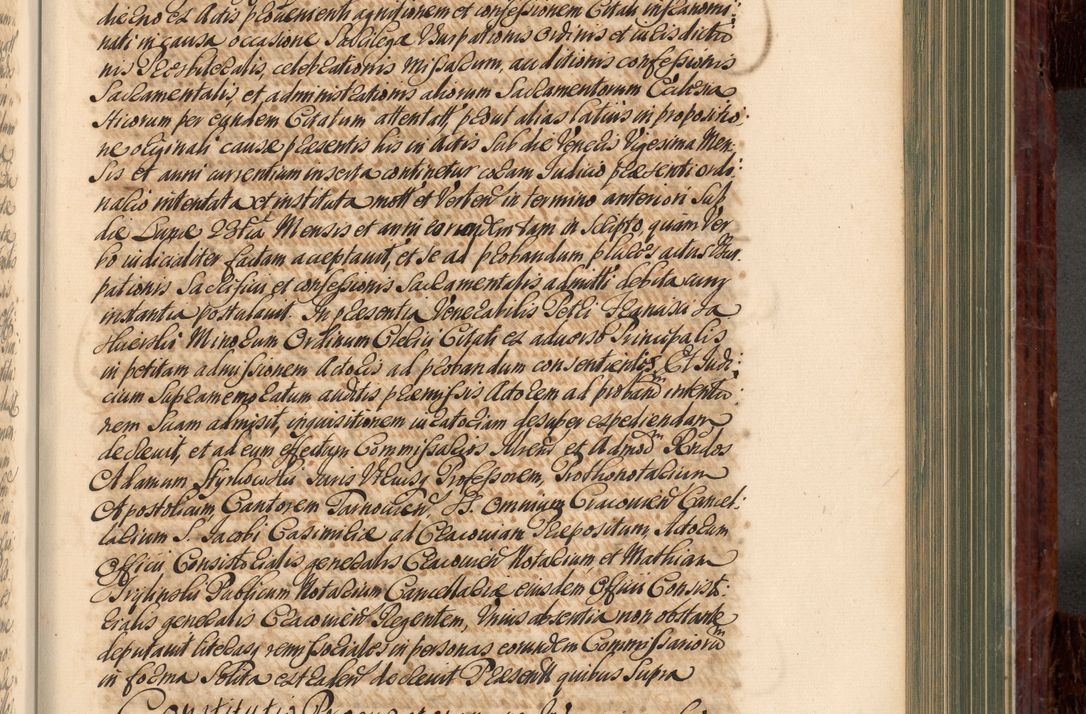 nati in causa occasione Sacrilegæ Usurpationis Ordinis et iurisdictio
nis Presbiteralis, celebrationis Missarum, auditionis confessionis
Sacramentalis, et administrationis aliorum Sacramentorum Ecclesia
sticorum per eundem Citatum attentatt prout alias latius in propositio:
ne originali causæ præsentis his in actis sub die Veneris Vigesima Men:
sis et anni currentium inserta continetur coram Judicio præsenti ordi:
nario intentata et instituta mott et Verten in termino anteriori sub
die Lunæ Mensis et anni eorundem tam in scripto, quam Ver
bo iudicialiter factam acceptavit, et se ad probandum actus Usur:
pationis Sacrificii et confessionis Sacramentalis admitti debita cum
instantia postulavit. In præsentia Venerabilis Petri
Minorum Ordinum Clerici Citati ex adverso Principalis,
in petitam admissionem Actoris ad probandum consentientis. Et Judi:
cium Supramemoratum auditis præmissis Actorem ad probatū intentio:
nem suam admisit, inquisitionem iuratoriam desuper expediendam
decrevit, et ad eum effectum Commissarios et Admod Rndos
Adamum Juris Utriusq Professorem, Prothonotarium
Apostolicum Cantorem Tarnovien, OO. Omnium Cracovien Cancel:
larium S. Jacobi Casimiriæ ad Cracoviam Præpositum, Actorum
Officii Consistorialis generalis Cracovien Notarium et Mathiam
Publicum Notarium Cancellariæ eiusdem Officii Consist:
rialis generalis Cracovien Regentem, Unius absentia non obstante
deputavit literasq remissoriales in personas eorundem Commissariorū
in forma solita extraden decrevit Præsentt quibus supra